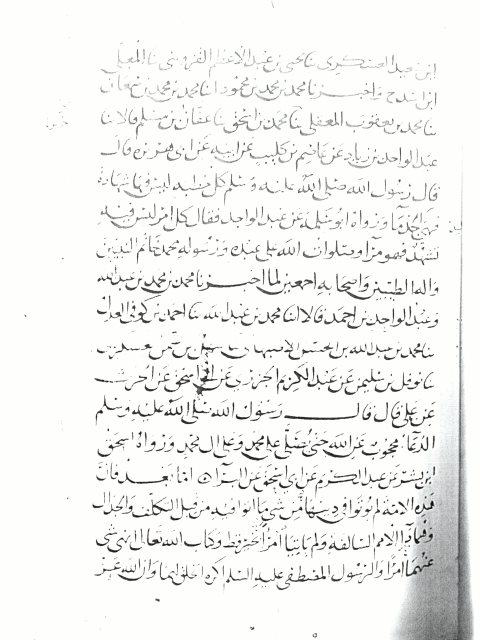 ابن عبد العسكري نا يحيى بن عبد الاعظم القزويني نا المعلى
ابن محمد بن محمد بن محمود انا محمد بن محمد بن
نا محمد بن يعقوب المعقلي نا محمد بن اسحق نا عفان بن مسلم قالا نا
عبد الواحد بن زياد عن عاصم بن كليب عن ابيه عن ابي هريرة قال
قال رسول الله صلى الله عليه وسلم كل خطبة ليس فيها شهادة
فهي ورواه ابو سلمة عن عبد الواحد فقال كل امر ليس فيه
تشهد فهو وصلوات الله على عبده ورسوله محمد خاتم النبيين
واله الطيبين واصحابه اجمعين لما نا محمد بن محمد بن عبد الله
وعبد الواحد بن احمد قالا انا محمد بن عبد الله نا احمد بن كوفي العدل
نا محمد بن عبد الله بن الحسن الاصبهاني سهل بن عثمن
نا نوفل بن سليمن عن عبد الكريم الجزري عن ابي اسحق عن الحرث
عن علي قال قال رسول الله صلى الله عليه وسلم
الدعاء محجوب عن الله حتى يصلى على محمد وعلى ال محمد ورواه اسحق
ابن بشر عن عبد الكريم عن ابي اسحق عن البرآء اما بعد فان
هذه الامة لم توتوا في دينها من شي ما اتوا فيه من قبل التكلف والجدال
وقد الامم السالفة ولم ياتيا امرا بخير قط وكتاب الله تعالى انهى شي
عنهما امرا والرسول المصطفى عليه السلم اكره الخلق لهما وان الله عز